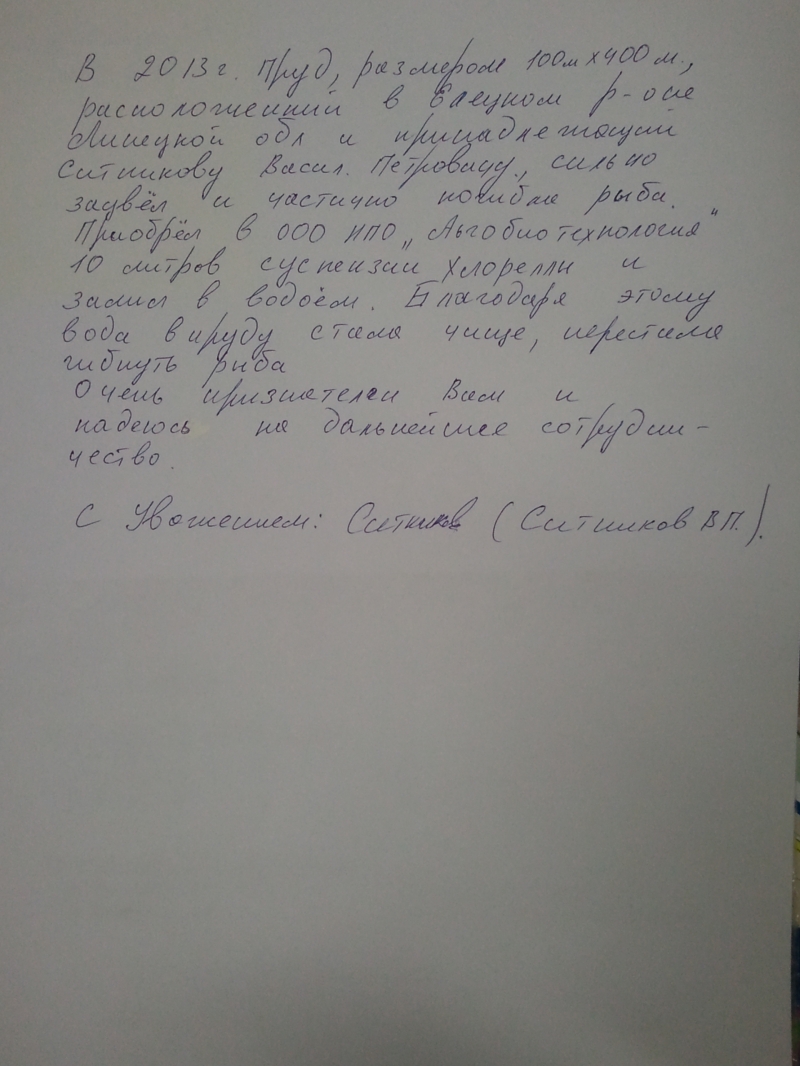 В 2013 г. Пруд, размером 100м х 400 м.,
расположенний в Елецком р-оне
Липецкой обл и принадлежащий
Ситникову Васил. Петровичу, сильно
зацвёл и частично погибла рыба.
Приобрёл в ООО НПО „Альгобиотехнология"
10 литров суспензии Хлореллы и
залил в водоём. Благодаря этому
вода в пруду стала чище, перестала
гибнуть рыба
Очень признателен Вам и
надеюсь на дальнейшее сотрудни-
чество.
С Уважением: Ситников (Ситников В П.).